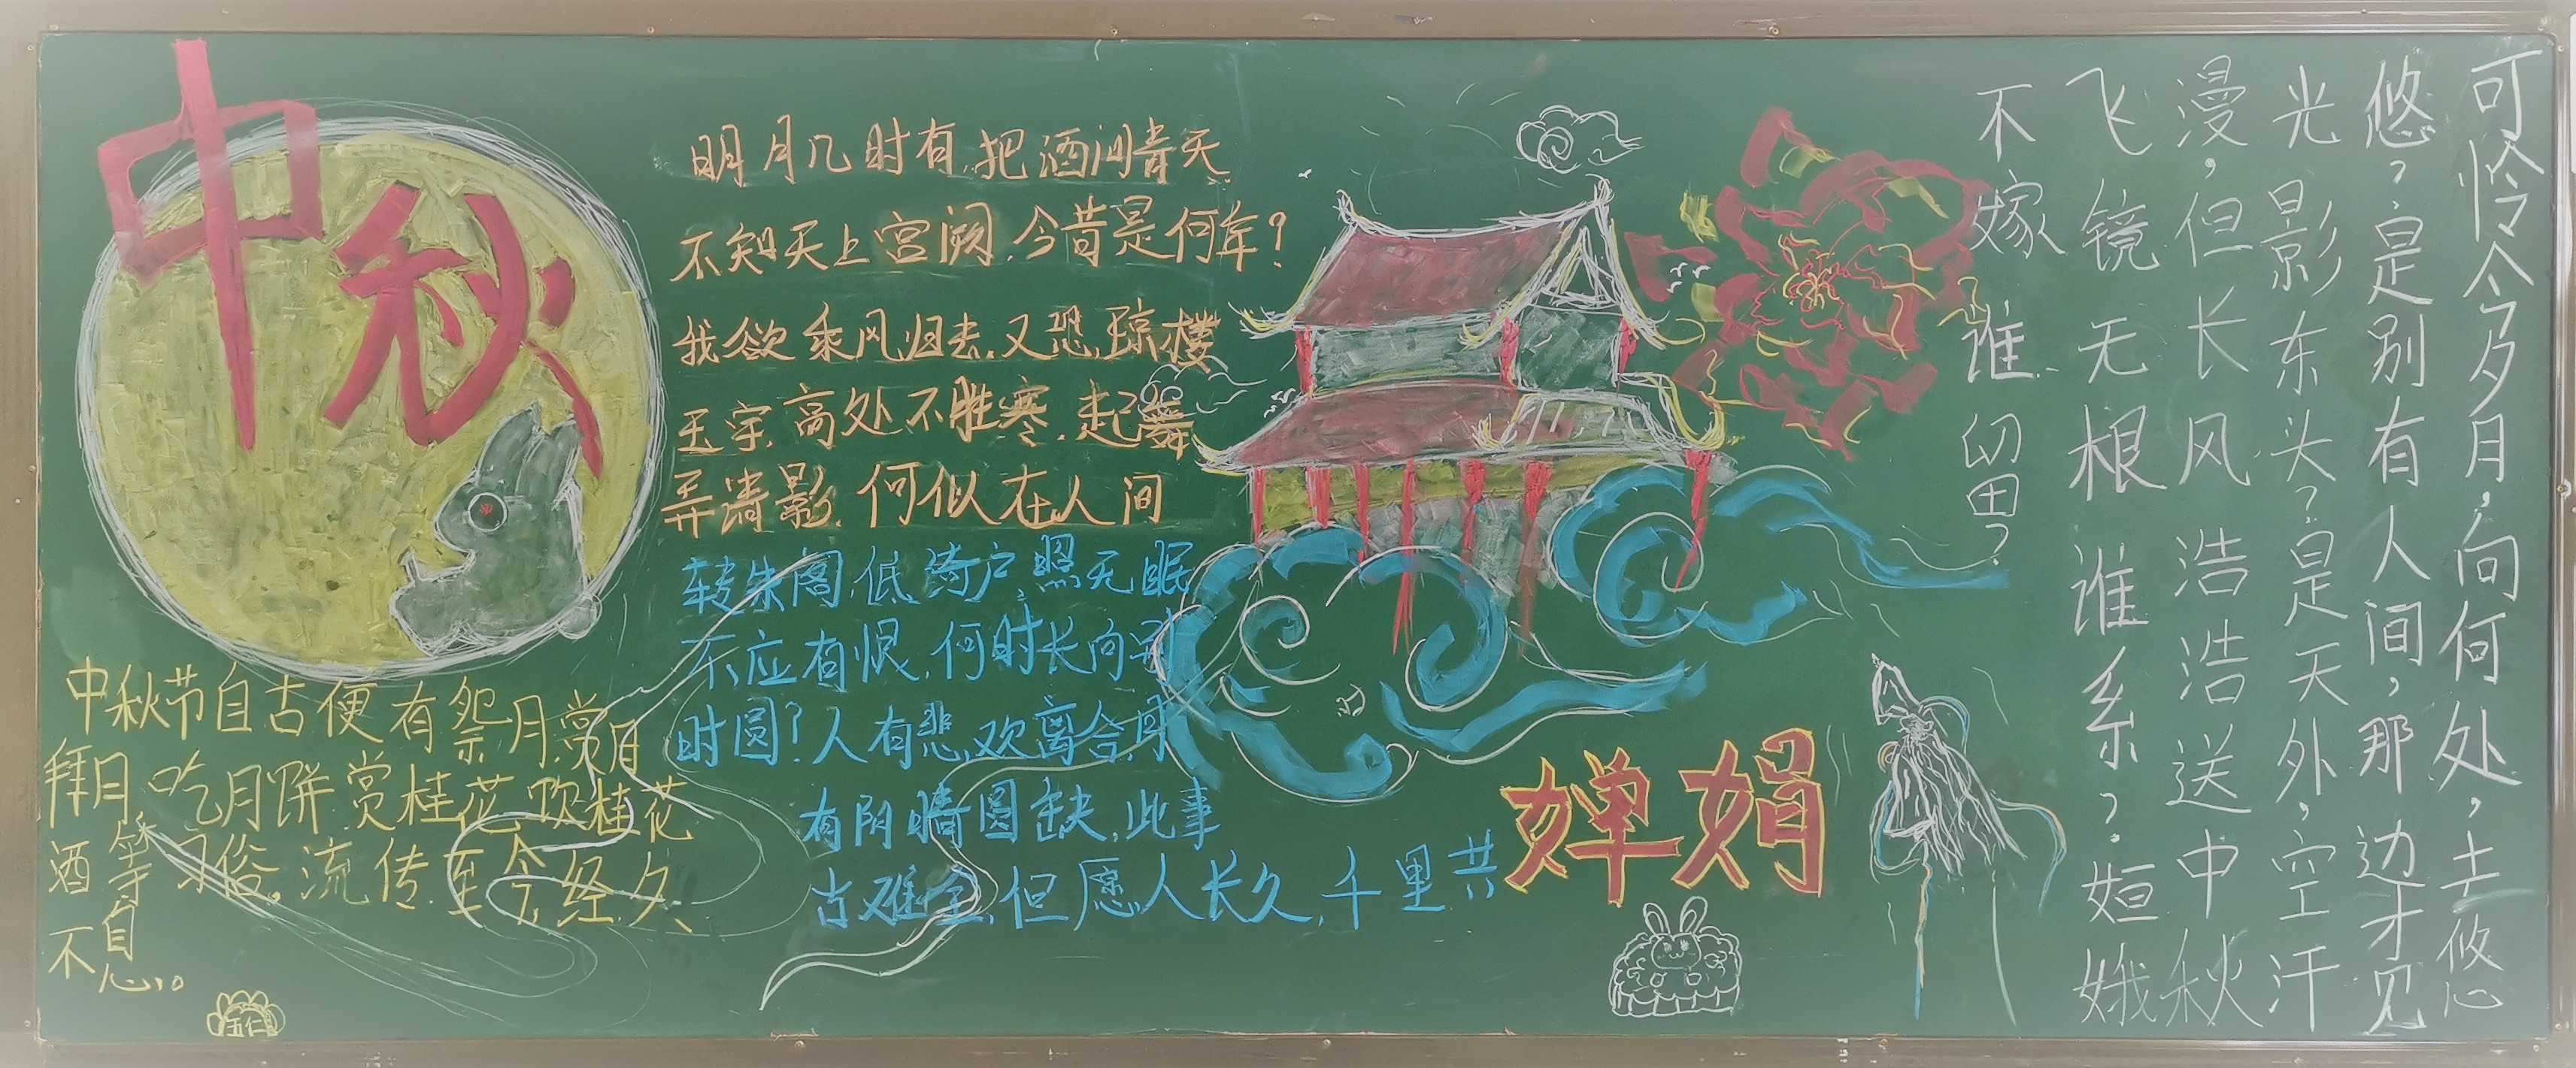 中秋
明月几时有,把酒问青天
不知天上宫阙,今昔是何年?
我欲乘风归去,又恐琼楼
玉宇,高处不胜寒,起舞
弄清影,何似在人间
转朱阁,低绮户,照无眠
不应有恨,何时长向别
时圆?人有悲欢离合,月
有阴晴圆缺,此事
古难全,但愿人长久,千里共
婵娟
中秋节自古便有祭月,赏月
拜月,吃月饼,赏桂花,饮桂花
酒等习俗。流传至今,经久
不息。
五仁
可怜今夕月,向何处,去悠
悠?是别有人间,那边才见
光影东头?是天外,空汗
漫,但长风浩浩送中秋
飞镜无根谁系?姮娥
不嫁谁留?